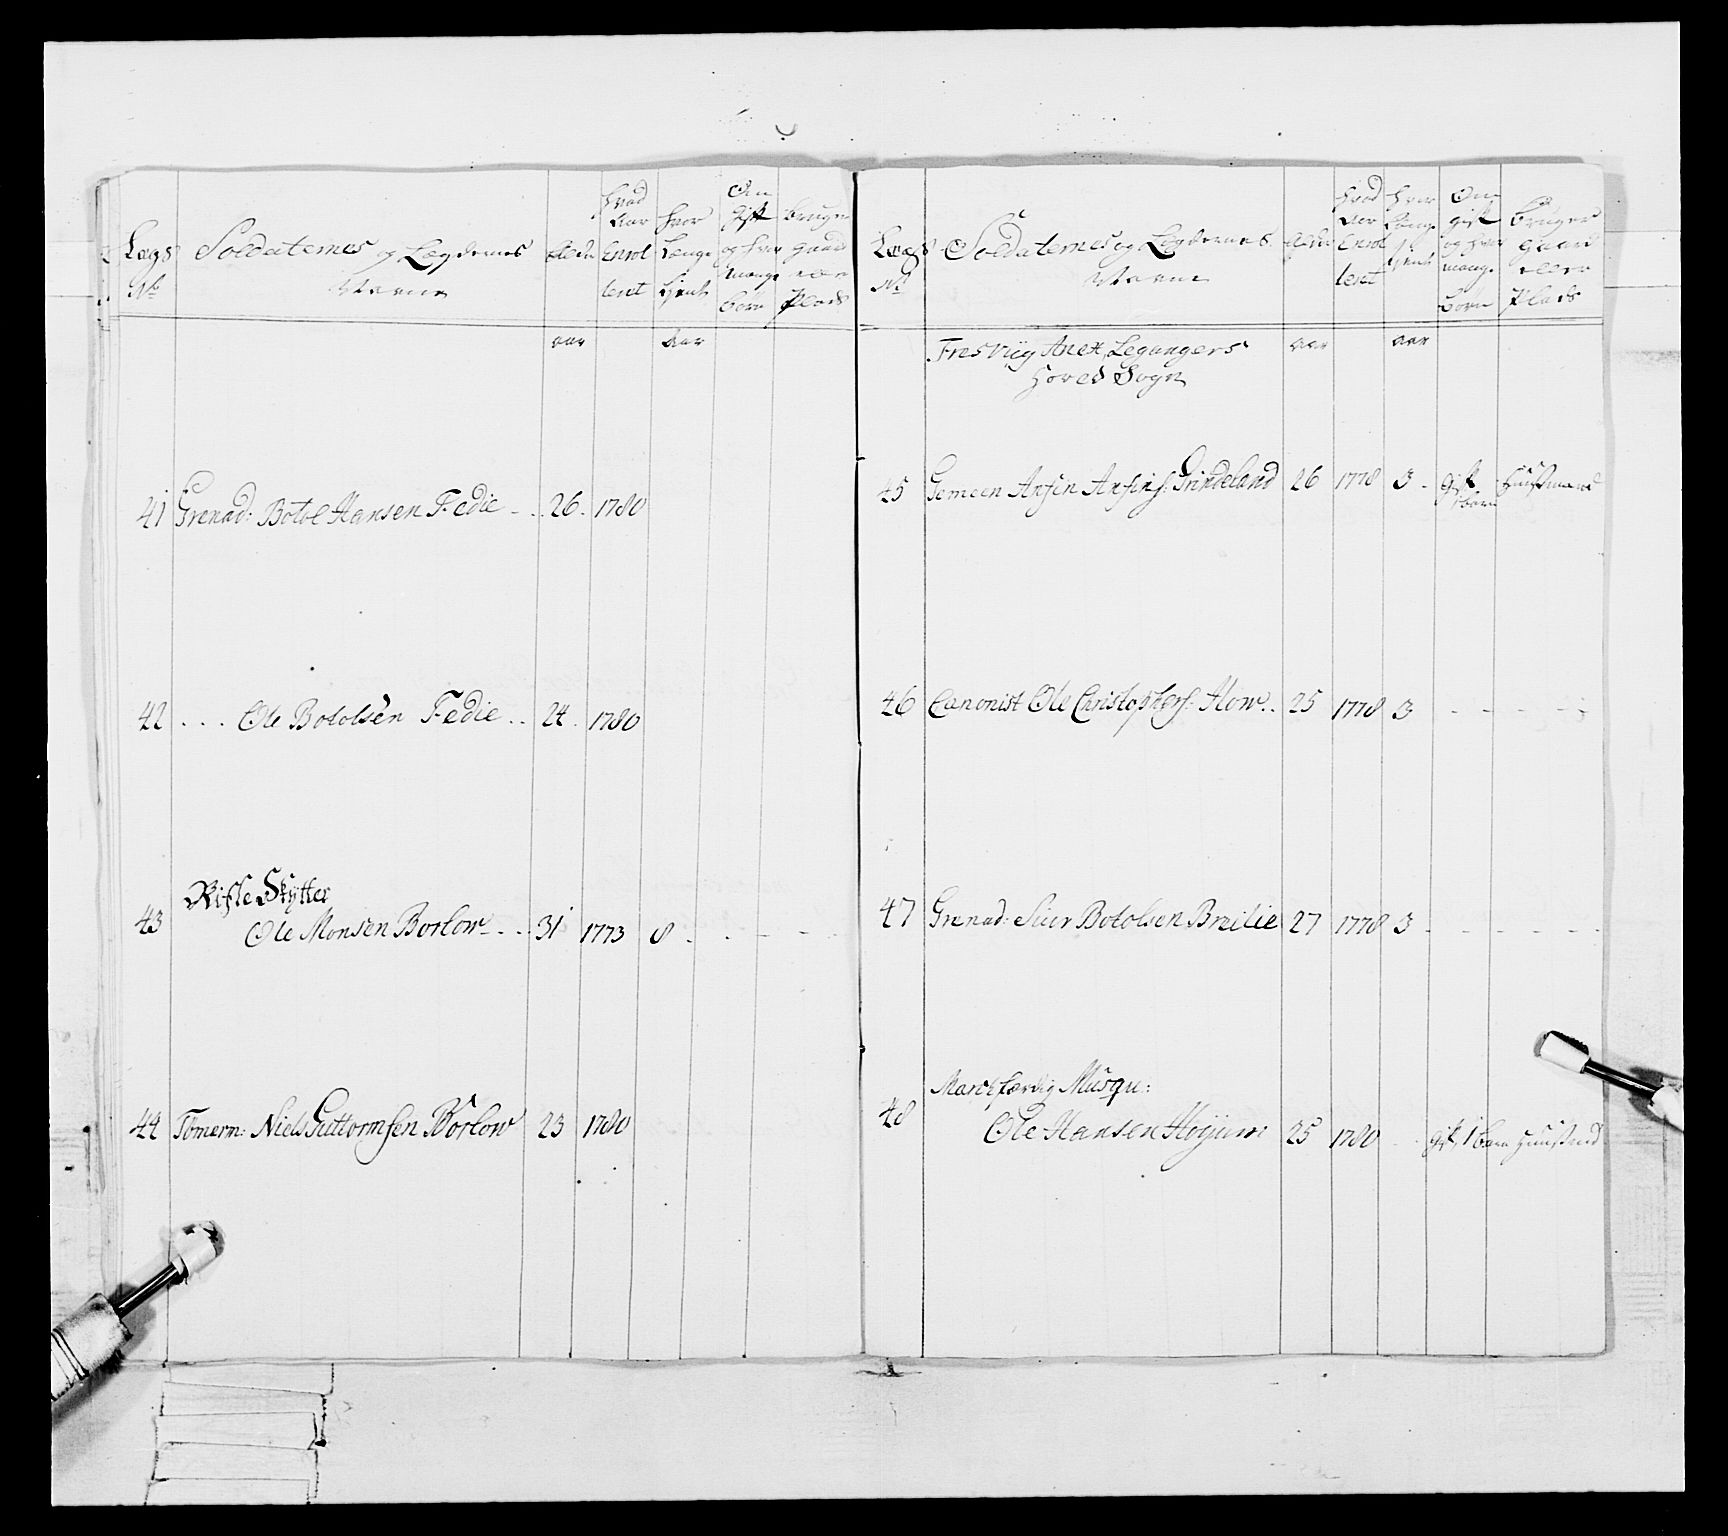 Lægs No
Soldaternes og Lægdernes Navne
Alder
hvad Aar Enrol leret
hvor Længe tient
Om gift og hvor mange børn
bruger gaard eller Plads
aar
Aar
41 Grenad: Botol Hansen Fedie - . . 26. 1780
42 . . . Ole Botolsen Fedie . . 24. 1780
43 Rifle Skÿtter
Ole Monsen Borlow - . . 31 1773 8 - - - - -
44 Tömerm: Niels Guttormsen Borlow 23 1780
Lægs No
Soldaternes og Lægdernes Navne
Alder
hvad Aar Enrol leret
hvor Længe tient
Om gift og hvor mange børn
bruger gaard eller Plads
Fresviig Anex, Legangers
Hoved Sogn
aar
aar
45 Gemeen Ansin Ansins: Grindeland 26 1778 3 - gift 1 barn huusmand
46 Canonist Ole Christophers: How . . 25 1778 3 - - - - -
47 Grenad: Siur Botolsen Breilie 27 1778 3 - - - - - -
48 Marchfærdig Musqu:
Ole Hansen Höÿum 25 1780 - gift, 1 barn huusmd